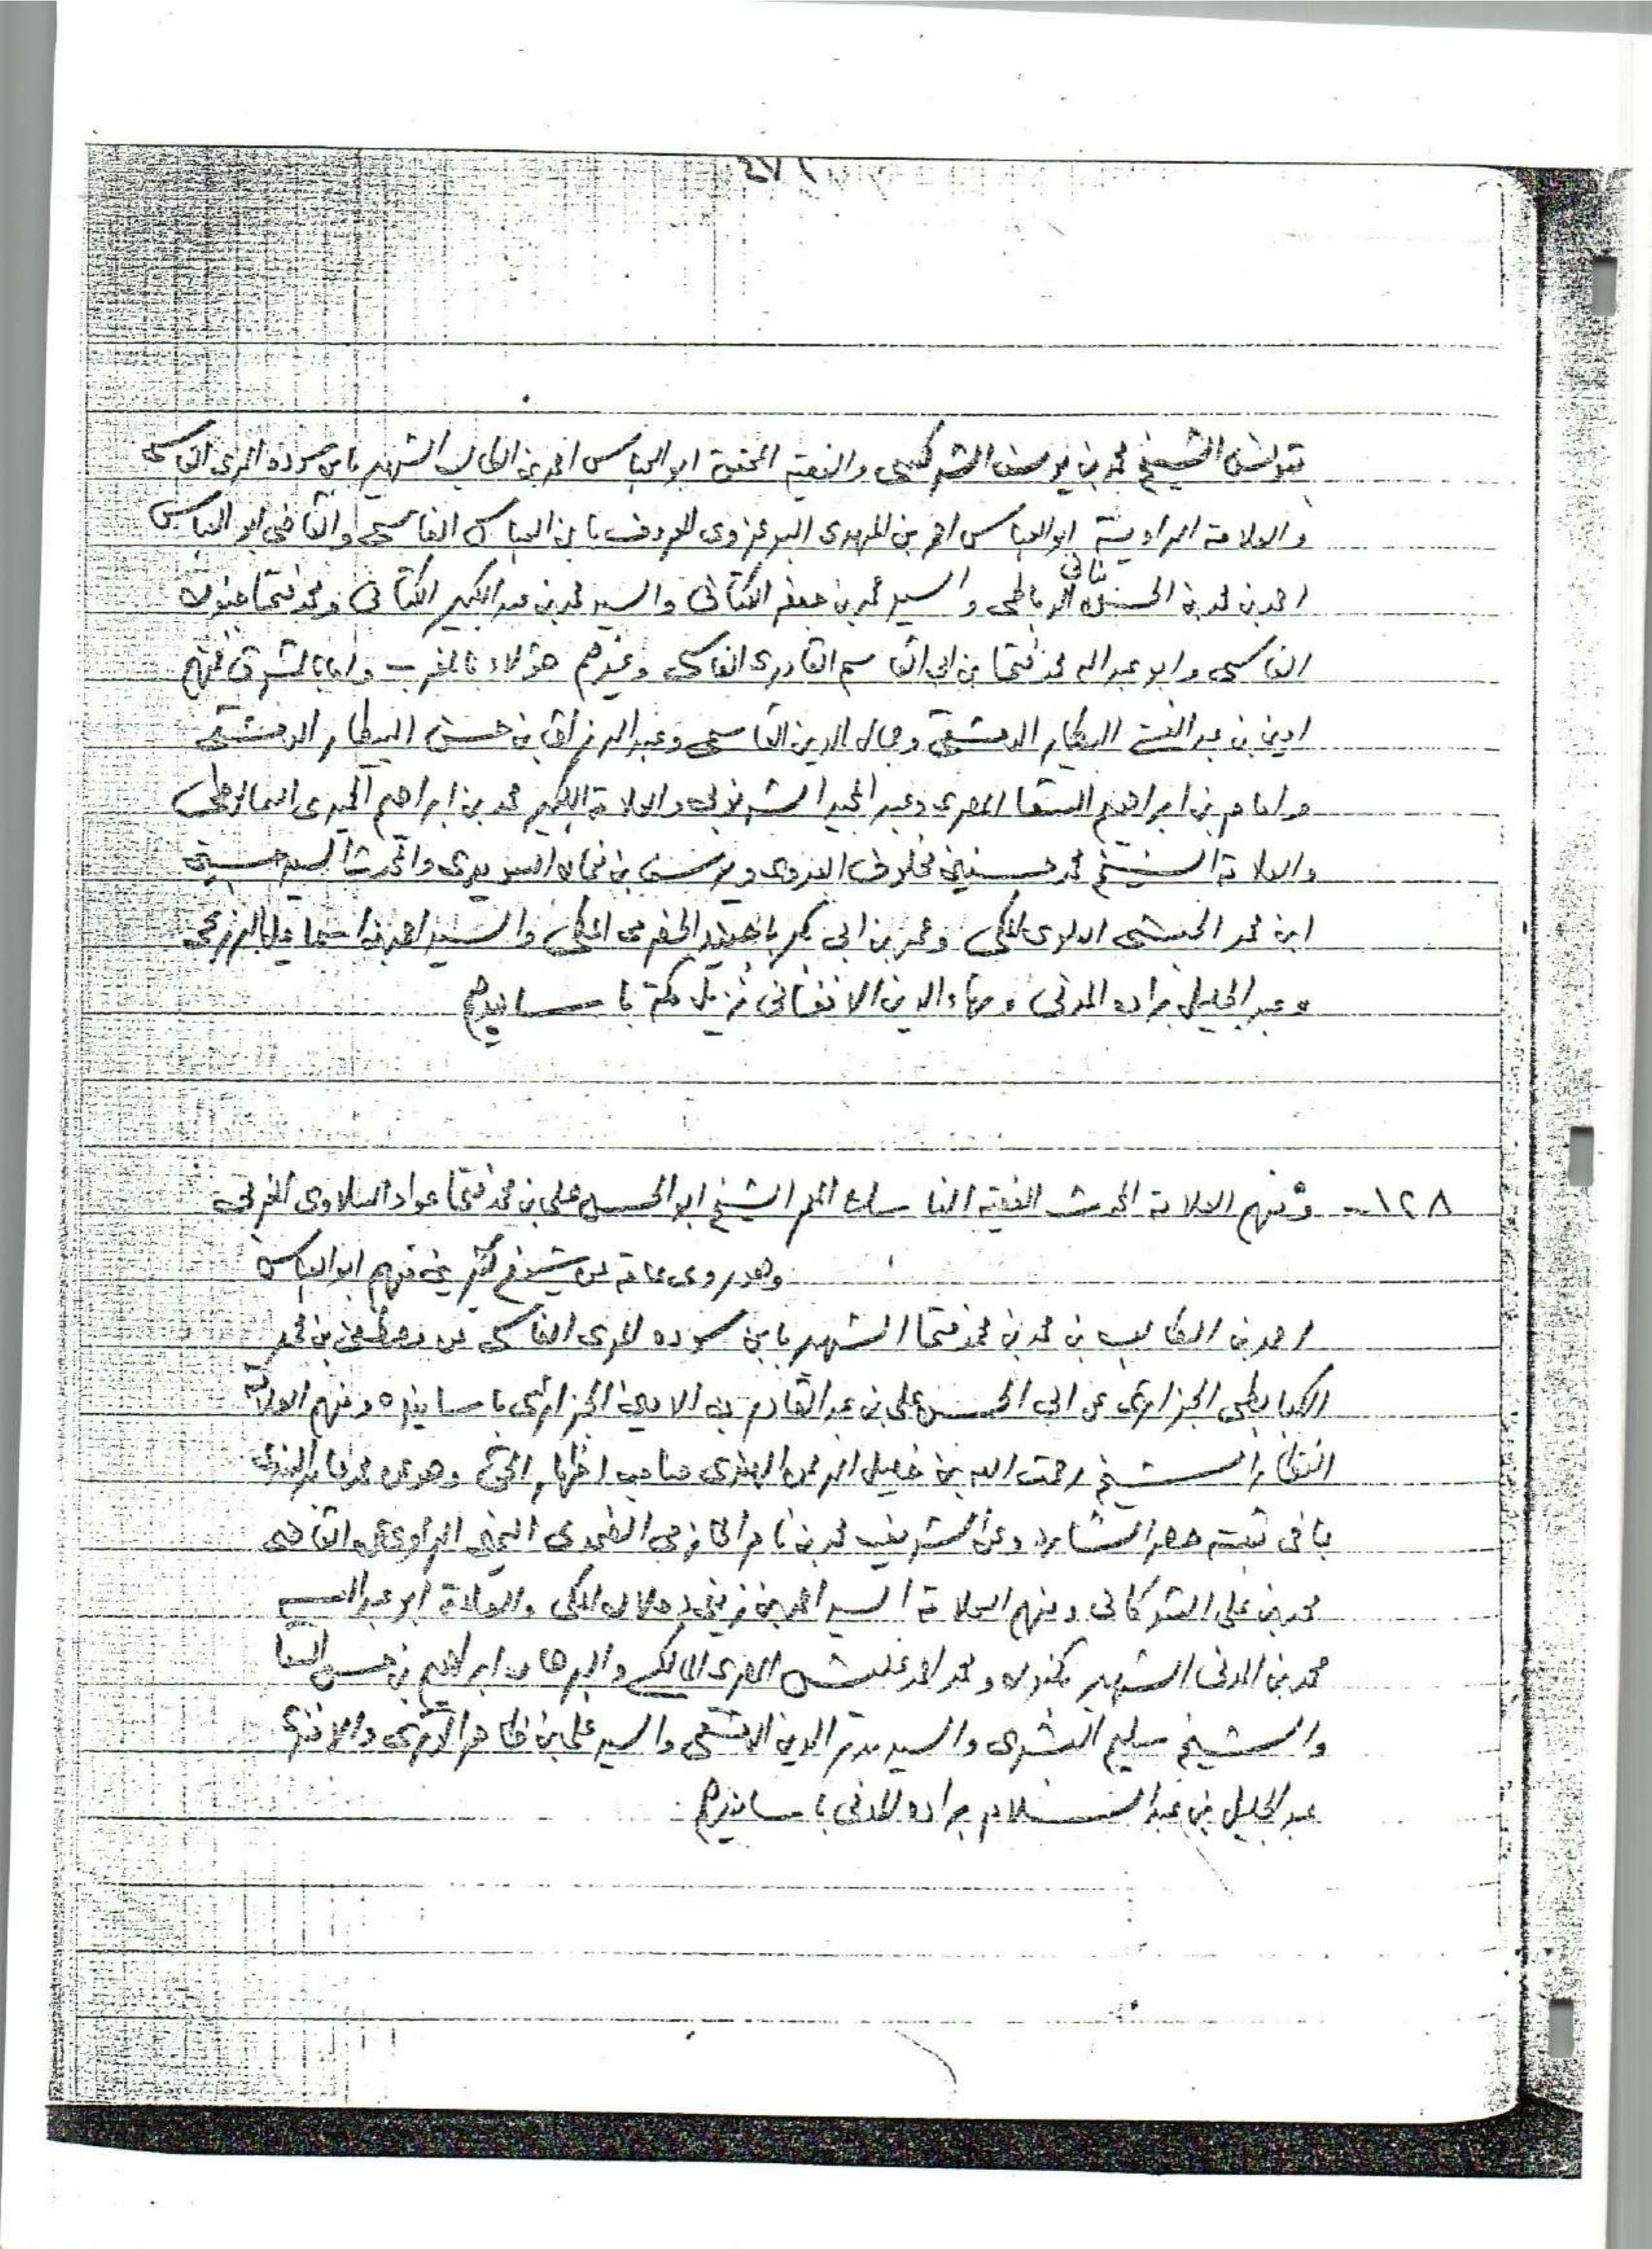 بتونس الشيخ محمد بن يوسف الشركسي والفقيه المحقق ابو العباس احمد بن الطالب الشهير بابن سوده المرى الفاسى
والعلامة الراوية ابو العباس احمد بن المهدى البوعزاوى المعروف بابن العباس الفاسى والقاضى ابو العباس
احمد بن محمد بن الحسن بنانى الرباطى والسيد محمد بن جعفر الكتانى والسيد محمد بن عبد الكبير الكتانى ومحمد فتحا كنون
الفاسى وابو عبد الله محمد فتحا بن ابى القاسم القادرى الفاسى وغيرهم هؤلاء بالمغرب واما بالمشرق فمنهم
امين بن عبد الغنى البيطار الدمشقى وجمال الدين القاسمى وعبد الرزاق بن حسن البيطار الدمشقى
وامام بن ابراهيم السقا المصرى وعبد المجيد الشرنوبى والعلامة الكبير محمد بن ابراهيم الحميدى السمالوطى
والعلامة الشيخ محمد حسنين مخلوف العدوى ويوسف بن السويدى والمحدث السيد حسين
ابن محمد الحبشى العلوى المكى وعمر بن ابى بكر باجنيد الحضرمى المكى والسيد احمد بن اسماعيل البرزنجى
وعبد الجليل براده المدنى وبهاء الدين الافغانى نزيل مكة باسانيدهم
١٢٨ - ومنهم العلامة المحدث الفقيه الناسك المعمر الشيخ ابو الحسن على بن محمد فتحا عواد السلاوى المغربى
وهو روى عامة عن شيوخ كثيرين منهم ابو العباس
احمد بن الطالب بن محمد بن محمد فتحا الشهير بابن سوده المرى الفاسى عن مصطفى بن محمد
الكبابطى الجزائرى عن ابى الحسن على بن عبد القادر بن الامين الجزائرى باسانيده ومنهم العلامة
النظار الشيخ رحمت الله بن خليل الرحمن الهندى صاحب اظهار الحق وهو عن محمد عابد السندى
بما فى ثبته حصر الشارد وعن الشريف محمد بن ناصر الحازمى الضمدى اليمنى الراوى عن القاضى
محمد بن على الشوكانى ومنهم العلامة السيد احمد بن زينى دحلان المكى والعلامة ابو عبد الله
محمد بن المدنى الشهير بكنون ومحمد احمد عليش المصرى المالكى والبرهان ابراهيم بن حسن السقا
والشيخ سليم البشرى والسيد بدر الدين الدمشقى والسيد على بن ظاهر الوترى والافندى
عبد الجليل بن عبد السلام براده المدنى باسانيدهم